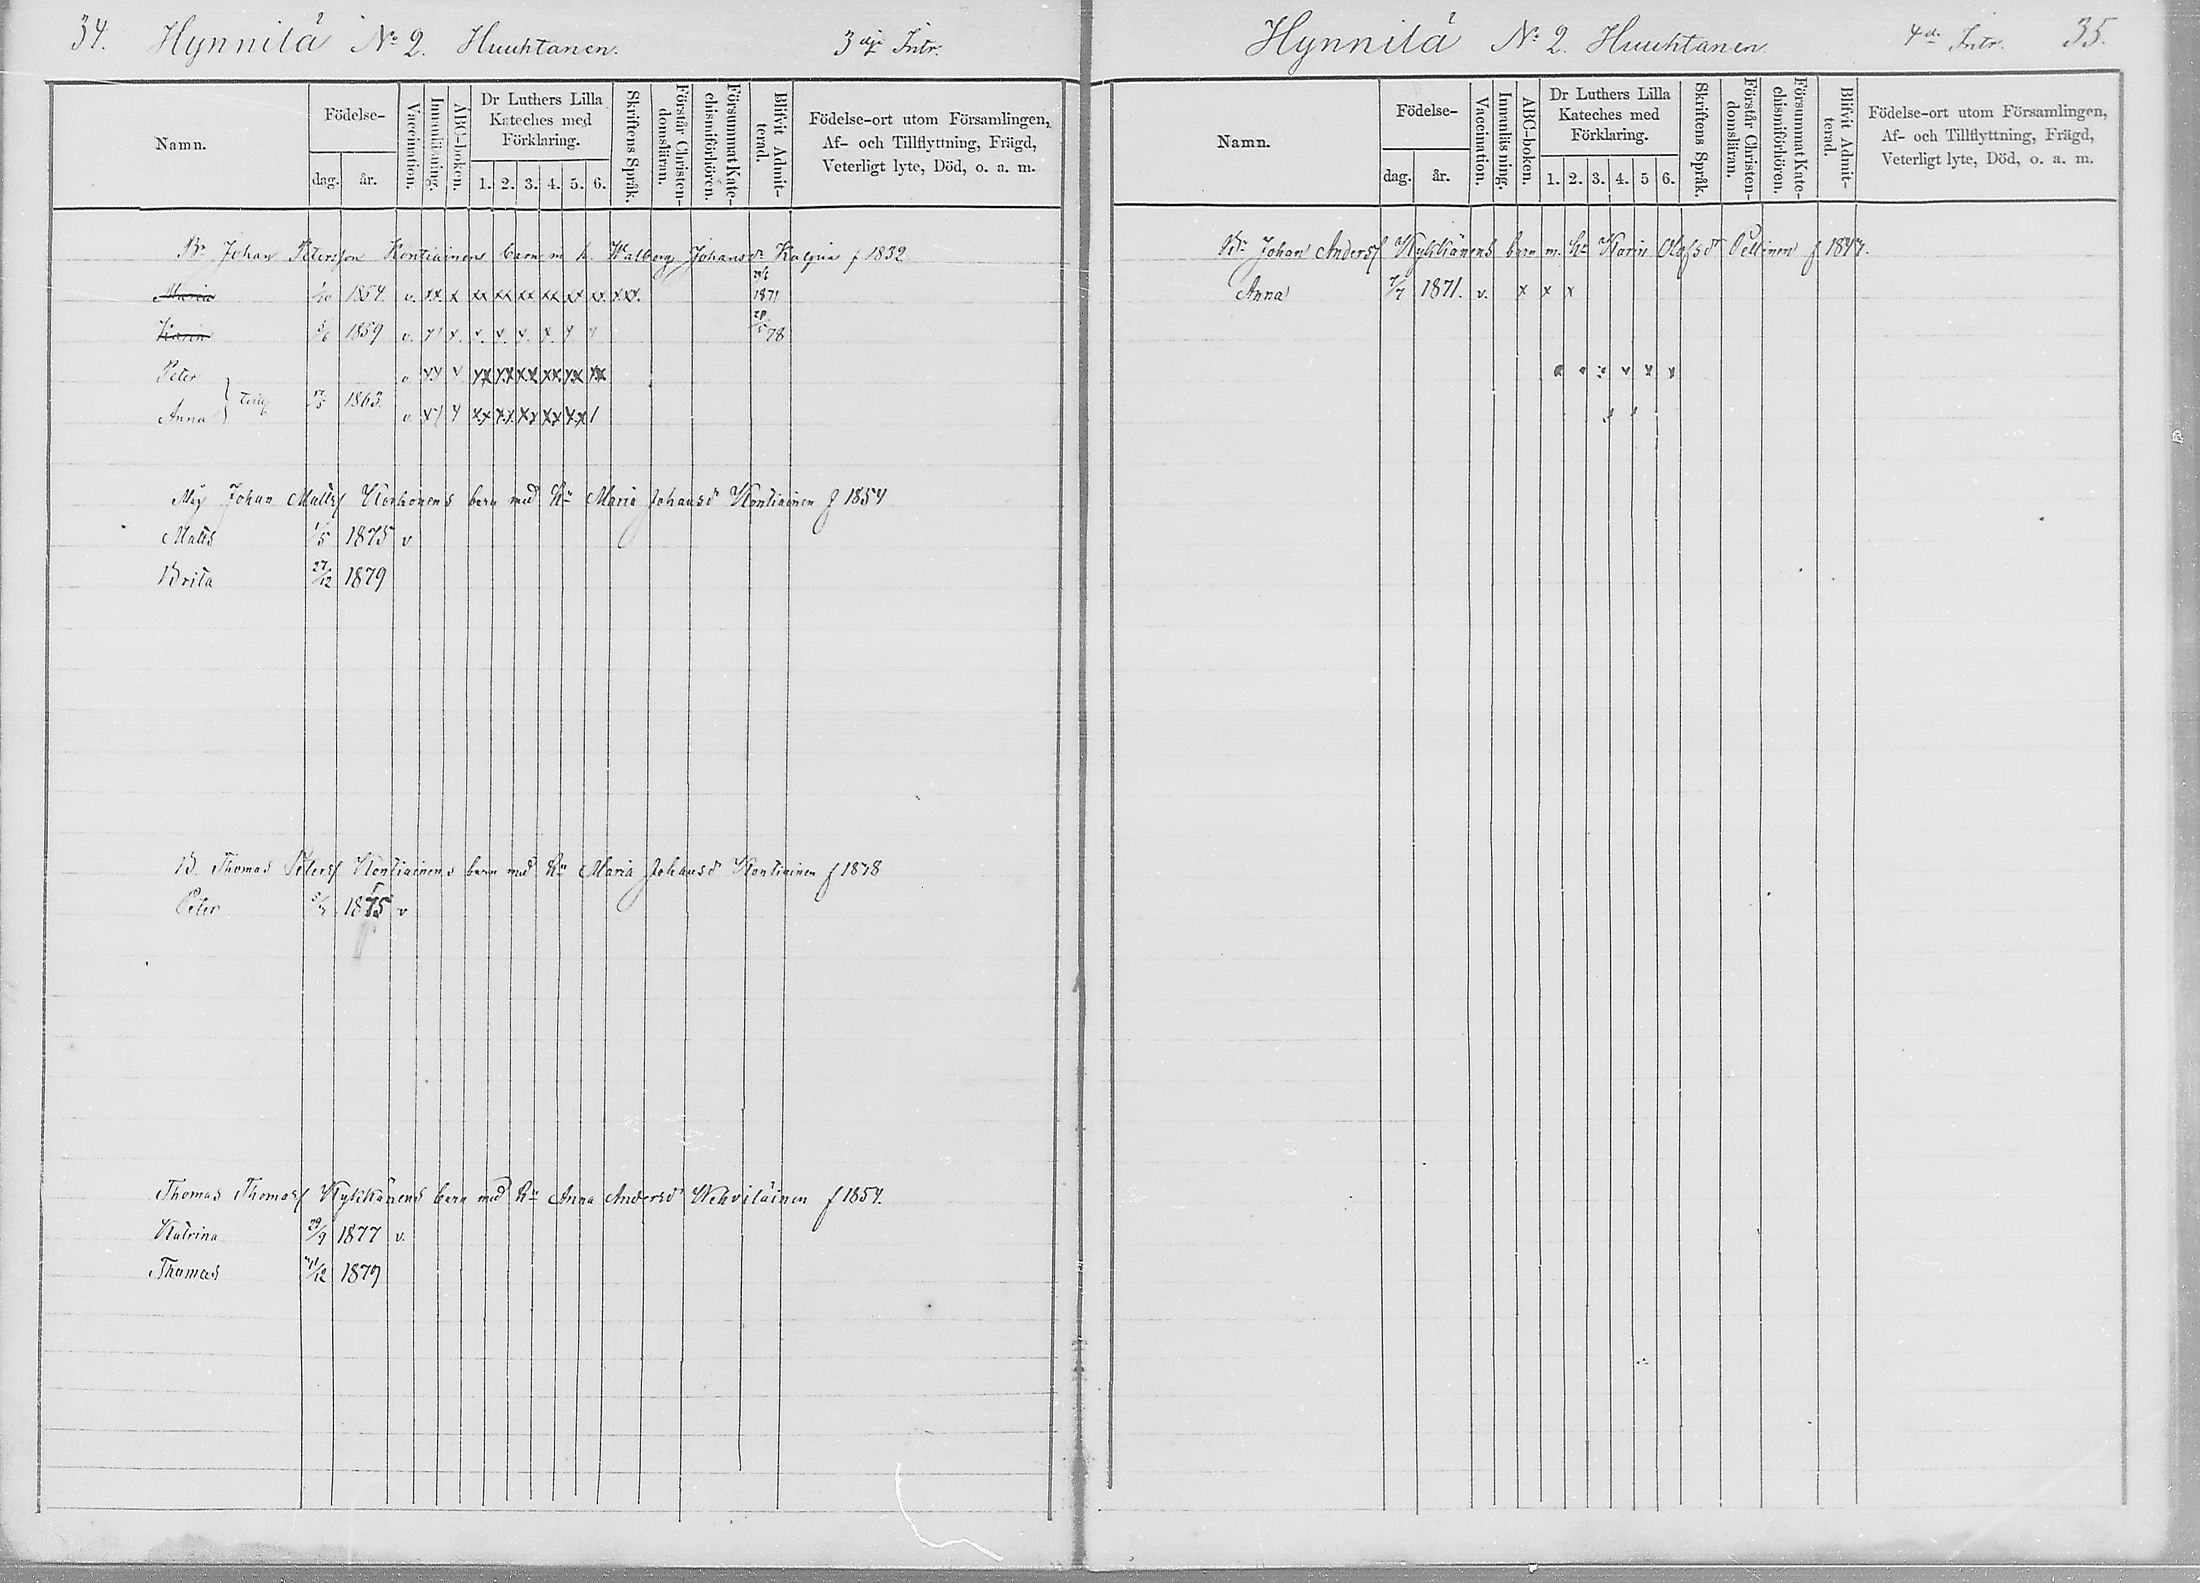 34. Hynnilä No 2. Huuhtanen. 3dje Intr.
Namn. Födelse- dag. år. Vaccination. Innanläsning. ABC-boken. Dr Luthers Lilla Kateches med Förklaring. 1. 2. 3. 4. 5. 6. Skriftens Språk. Förstår Christendomsläran. Försummat Katechismiförhören. Blifvit Admitterad. Födelse-ort utom Församlingen, Af- och Tillflyttning, Frägd, Veterligt lyte, Död, o. a. m.
Br Johan Petersson Kontiainens barn m h. Walborg Johansdr f 1832
Maria 1854. v. xx x xx xx xx xx xx xx xx. 1871
Karin 5/6 1859 v. x x. x. x. x. 78
Peter v xx x xx xx xx xx xx xx
1863.
Anna v x x xx xx xx xx xx /
Johan Matts Korhonens barn med hu Maria Johansd Kontiainen f 1854
Matts 1/5 1875 v
Brita 27/12 1879
B. Thomas Peters Kontiainens barn med hu Maria Johansd Kontiainen f 1878
Peter 1875 v
Thomas Thomas Kykkänens barn med hu Anna Andersd Wehviläinen f 1854.
Katrina 29/9 1877 v.
Thomas 1879
Hynnilä No 2. Huuhtanen. 4de Intr. 35.
Namn. Födelse- dag. år. Vaccination. Innanläsning. ABC-boken. Dr Luthers Lilla Kateches med Förklaring. 1. 2. 3. 4. 5 6. Skriftens Språk. Förstår Christendomsläran. Försummat Katechismiförhören. Blifvit Admitterad. Födelse-ort utom Församlingen, Af- och Tillflyttning, Frägd, Veterligt lyte, Död, o. a. m.
Br Johan Anders Kykkänens barn m. hu Karin Olofsd Pellinen f 1847.
Anna 7/7 1871. v. x x x